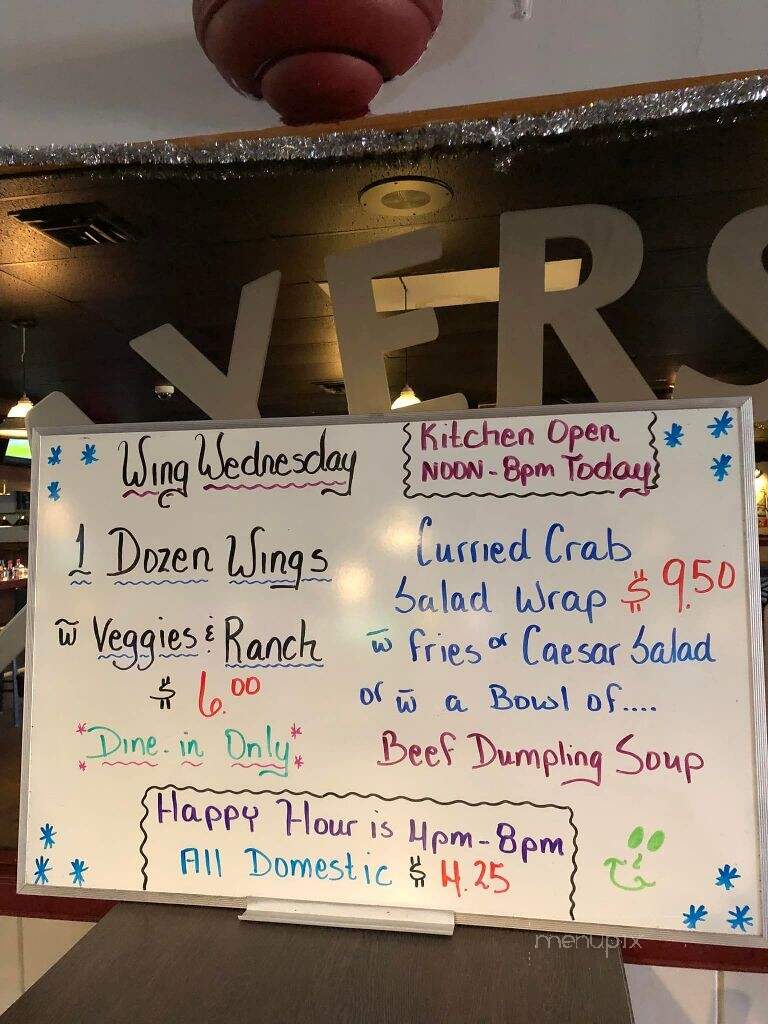 YERS
Wing Wednesday
Kitchen Open
NOON - 8pm Today
1 Dozen Wings
w̄ Veggies & Ranch
$ 6.00
*Dine-in Only*
Curried Crab
Salad Wrap $ 9.50
w̄ fries or Caesar Salad
or w̄ a Bowl of....
Beef Dumpling Soup
Happy Hour is 4pm-8pm
All Domestic $ 4.25
menupix